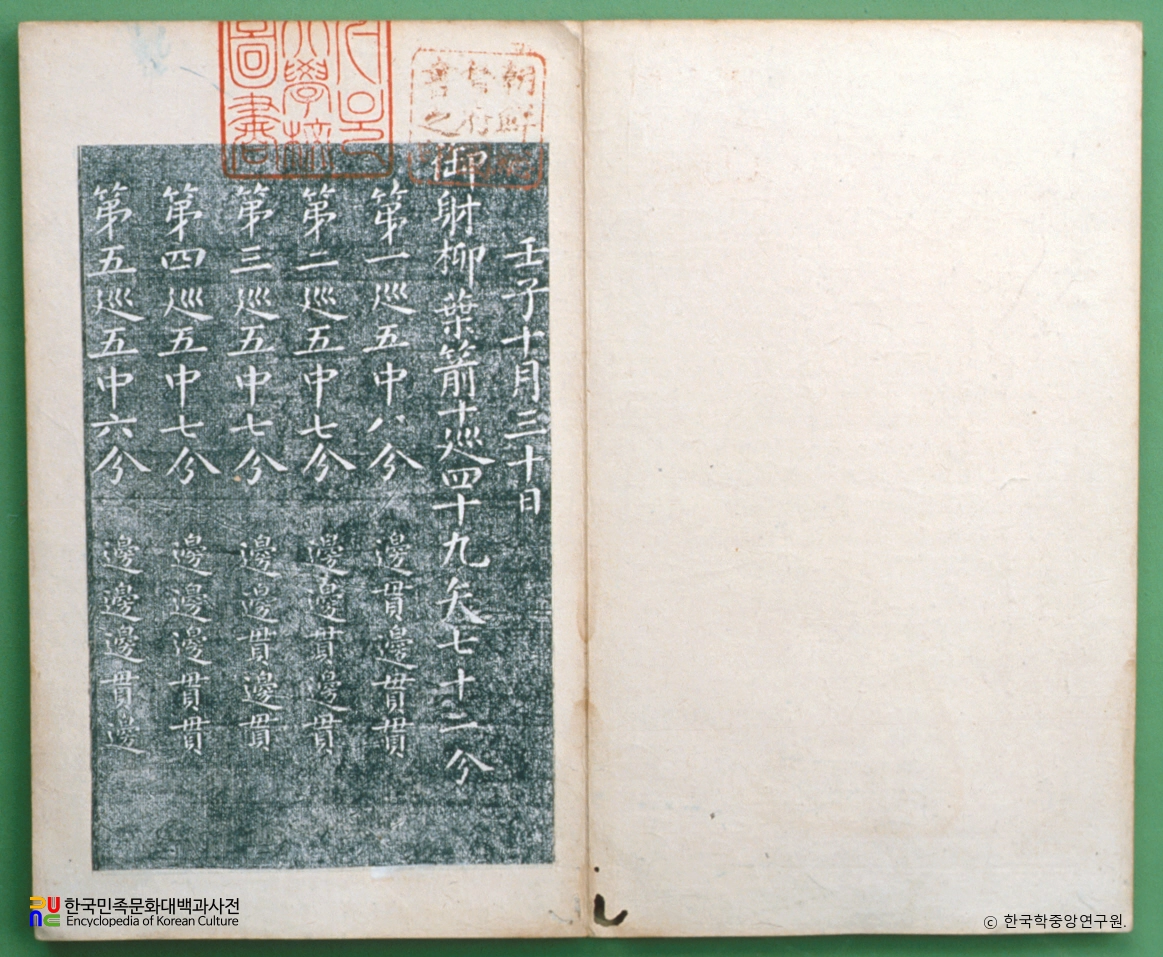 壬子十月三十日
御射柳葉箭十巡四十九矢七十二分
第一巡五中八分 邊貫邊貫貫
第二巡五中七分 邊邊貫邊貫
第三巡五中七分 邊邊貫邊貫
第四巡五中七分 邊邊邊貫貫
第五巡五中六分 邊邊邊貫邊
朝鮮總
督府
會之
大學校
圖書
한국민족문화대백과사전
Encyclopedia of Korean Culture
ⓒ 한국학중앙연구원.